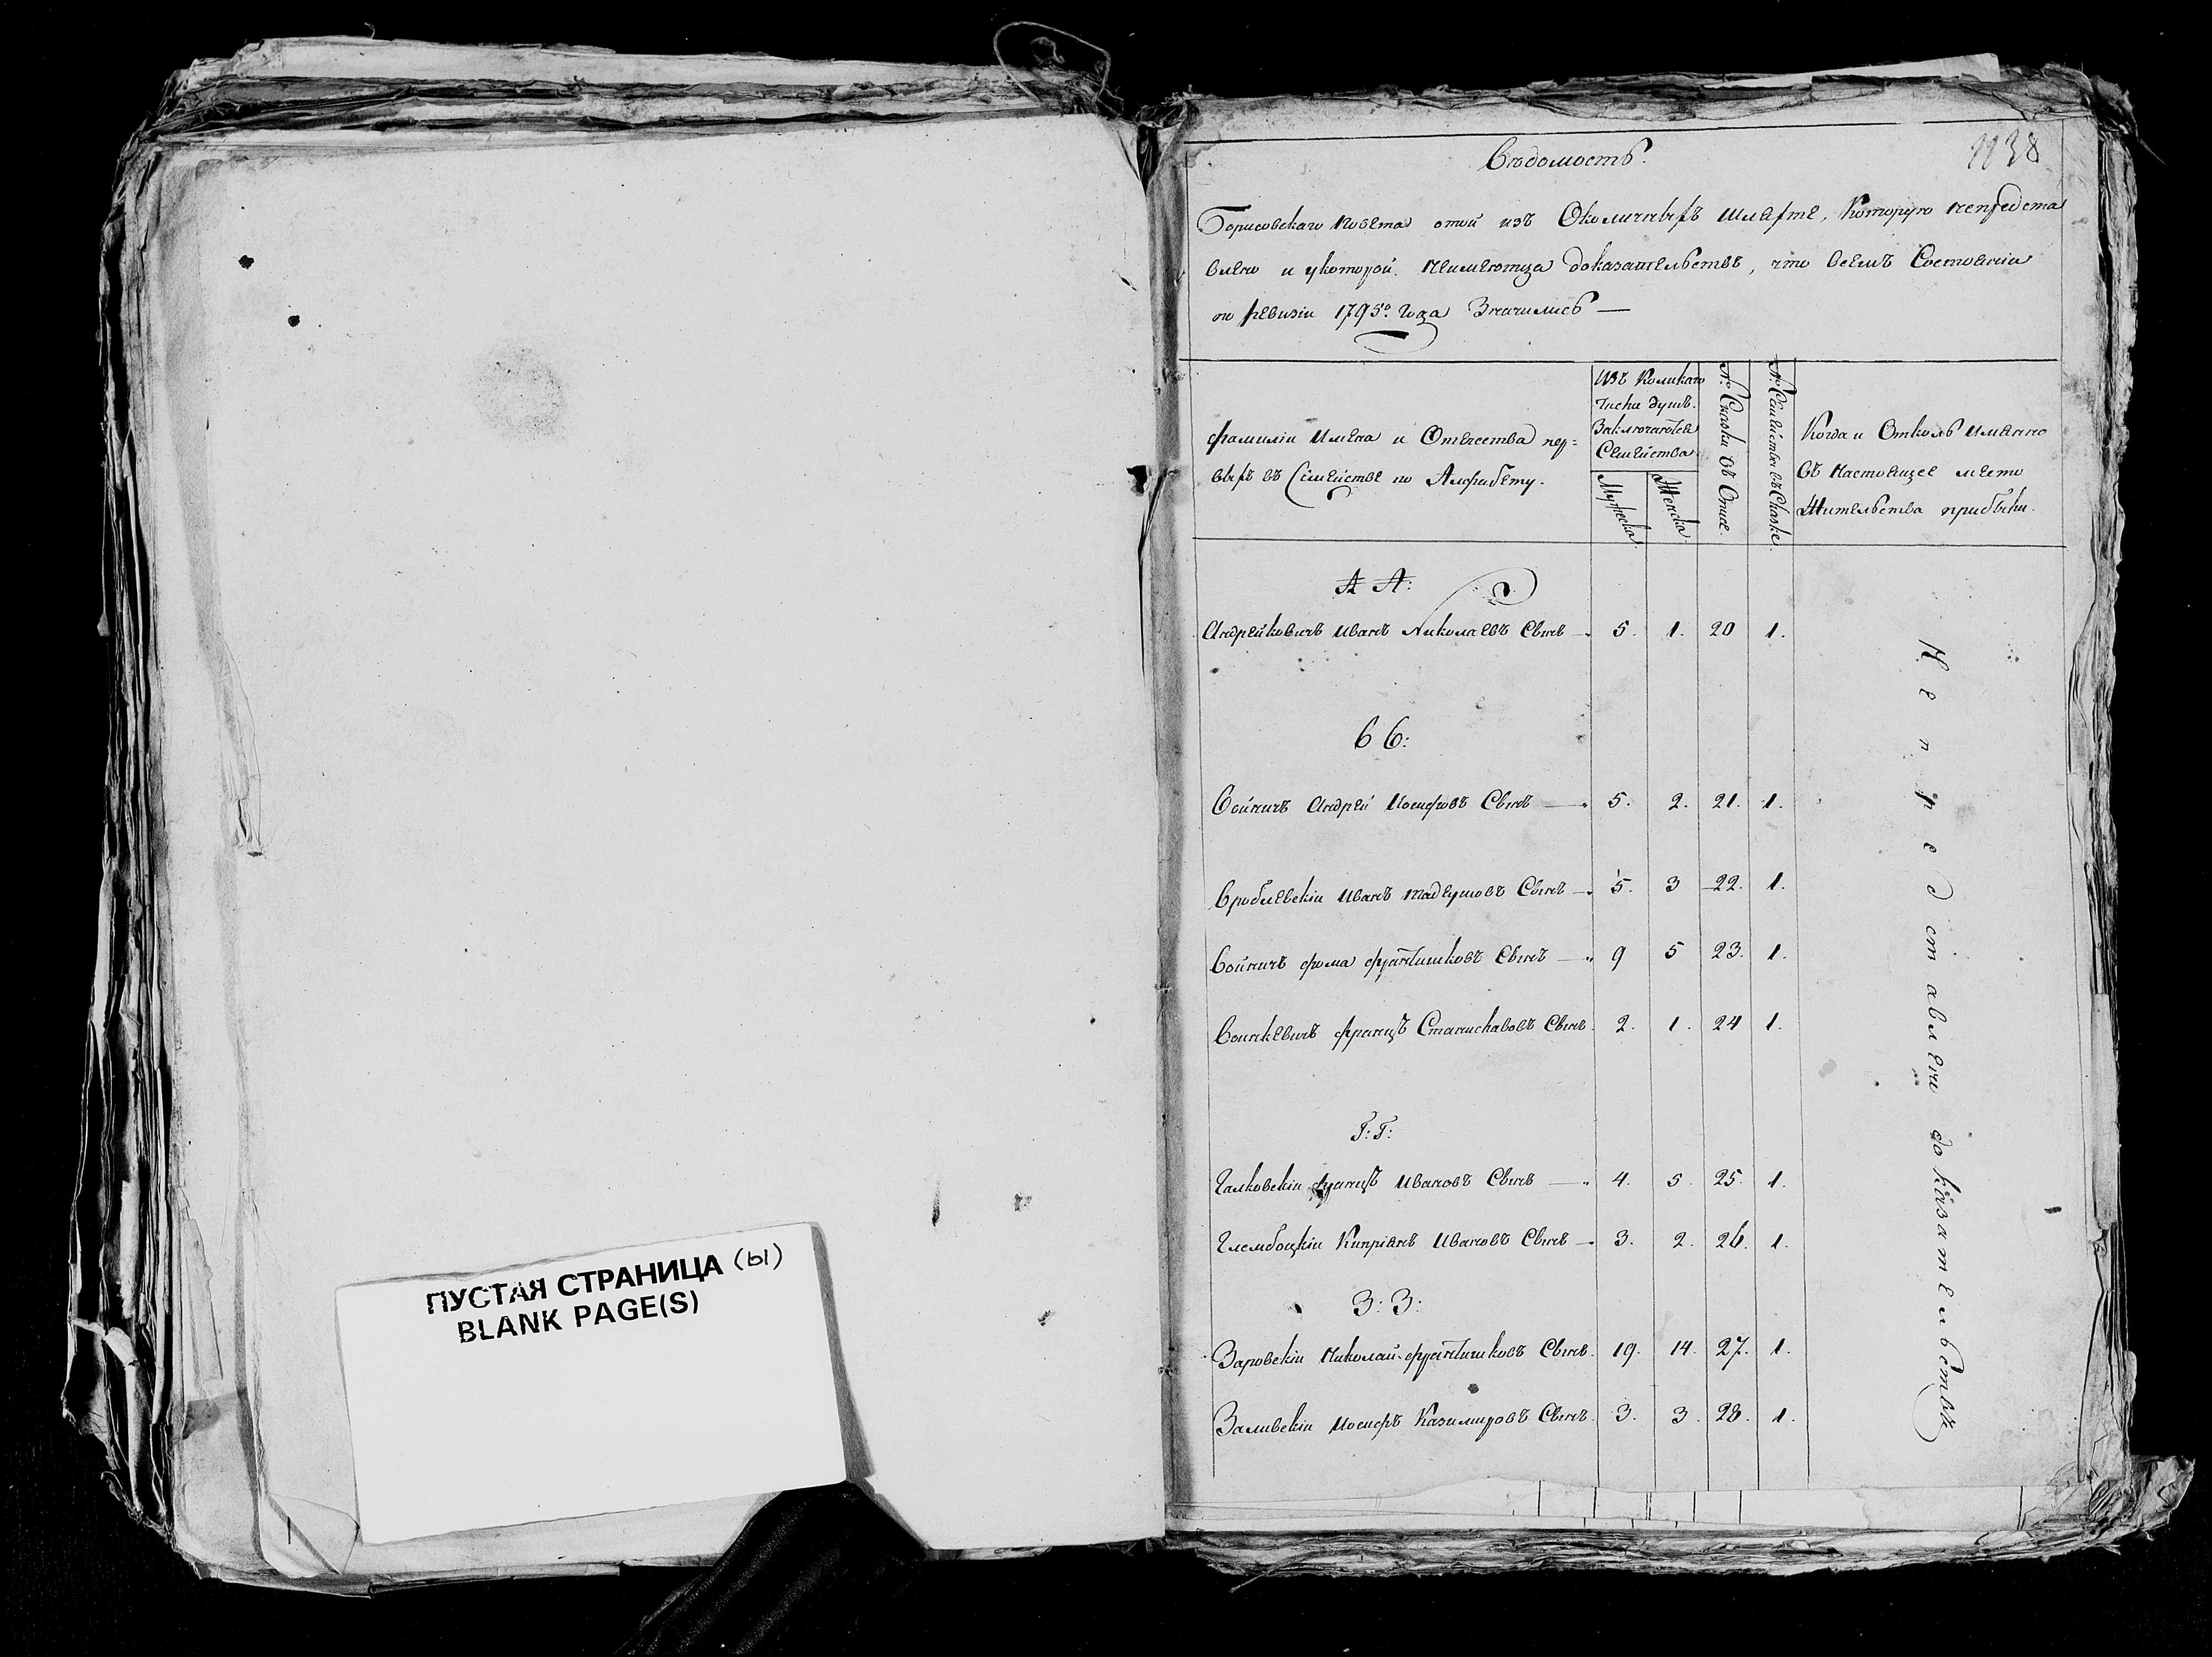 ПУСТАЯ СТРАНИЦА (ы)
BLANK PAGE(S)
1138
Вѣдомость.
Борисовскаго Повета отой изъ Околичныхъ шляхте, Которую непредста
влено и укоторой неимеютца доказательствъ, что всемъ Состоянiи
по ревизiи 1795го. Года Значились —
Фамилiи Имена и Отечества пер=
выхъ въ Семействе по Алфабету.
Изъ Коликаго
Числа душъ.
Заключаются
Семейства
Мужеска.
Женска
№ Сказки въ Описе.
№ Семейства въ Сказке.
Когда и Отколь Именно
въ Настоящее место
Жительства прибыли.
А А:
Андрейковичъ Иванъ Николаевъ Сынъ — 5. 1. 20 1.
В В:
Войничъ Андрей Иосифовъ Сынъ — 5. 2. 21. 1.
Вроблевскiи Иванъ Тадеушовъ Сынъ — 5. 3 22. 1.
Войничъ Фома Франтишковъ Сынъ — 9 5 23. 1.
Воинкевичъ Францъ Станиславовъ Сынъ. 2. 1. 24 1.
Г: Г:
Галковскiи Францъ Ивановъ Сынъ — 4. 5. 25. 1.
Глембоцкiи Киприянъ Ивановъ Сынъ — 3. 2. 26. 1.
З: З:
Заровскiи Николай Франтишковъ Сынъ. 19. 14. 27. 1.
Заливскiи Иосифъ Казимировъ Сынъ. 3. 3. 28. 1.
Непредставлено доказательствъ